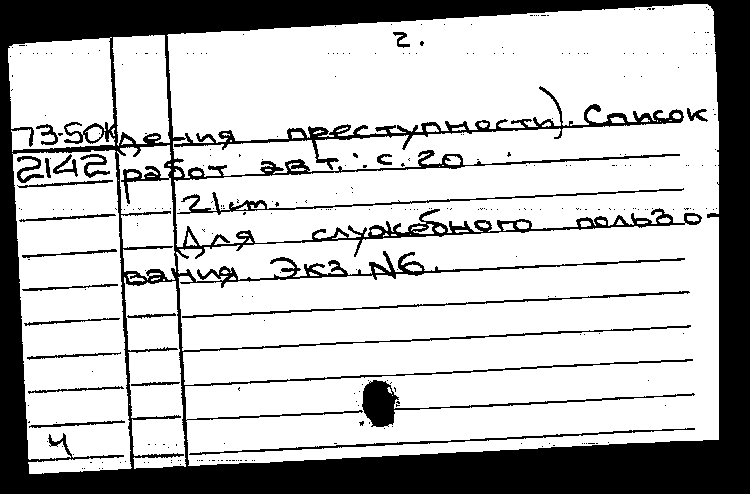 2.
73-50к дения преступности). Список
2142 работ авт.: с. 20.
21 см.
Для служебного пользо-
вания. Экз. N6.
ч